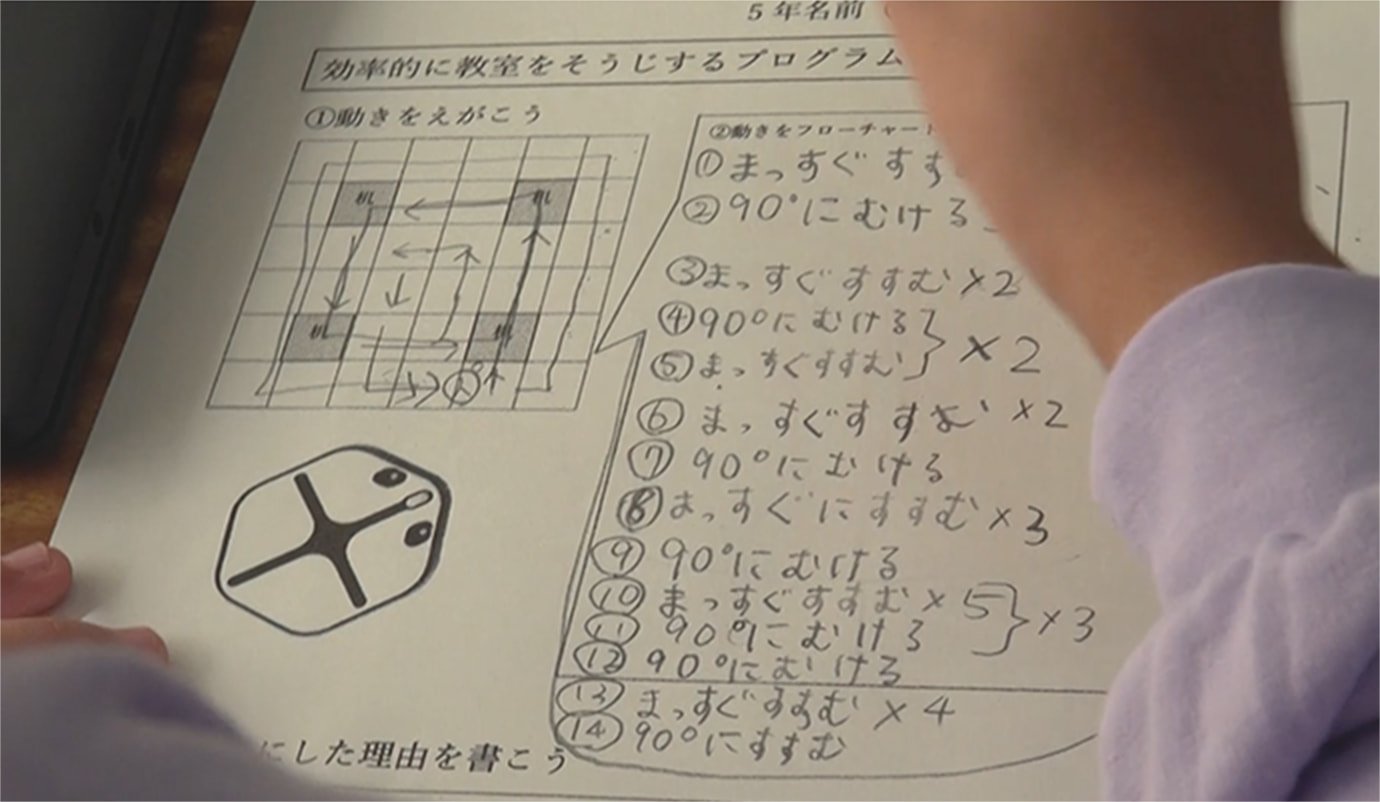 5年名前（
効率的に教室をそうじするプログラム
①動きをえがこう
机
机
机
机
②動きをフローチャー
①まっすぐすす
②90°にむける
③まっすぐすすむ×2
④90°にむける
⑤まっすぐすすむ
×2
⑥まっすぐすすむ×2
⑦90°にむける
⑧まっすぐにすすむ×3
⑨90°にむける
⑩まっすぐすすむ×5
⑪90°にむける
×3
⑫90°にむける
⑬まっすぐすすむ×4
⑭90°にすすむ
にした理由を書こう